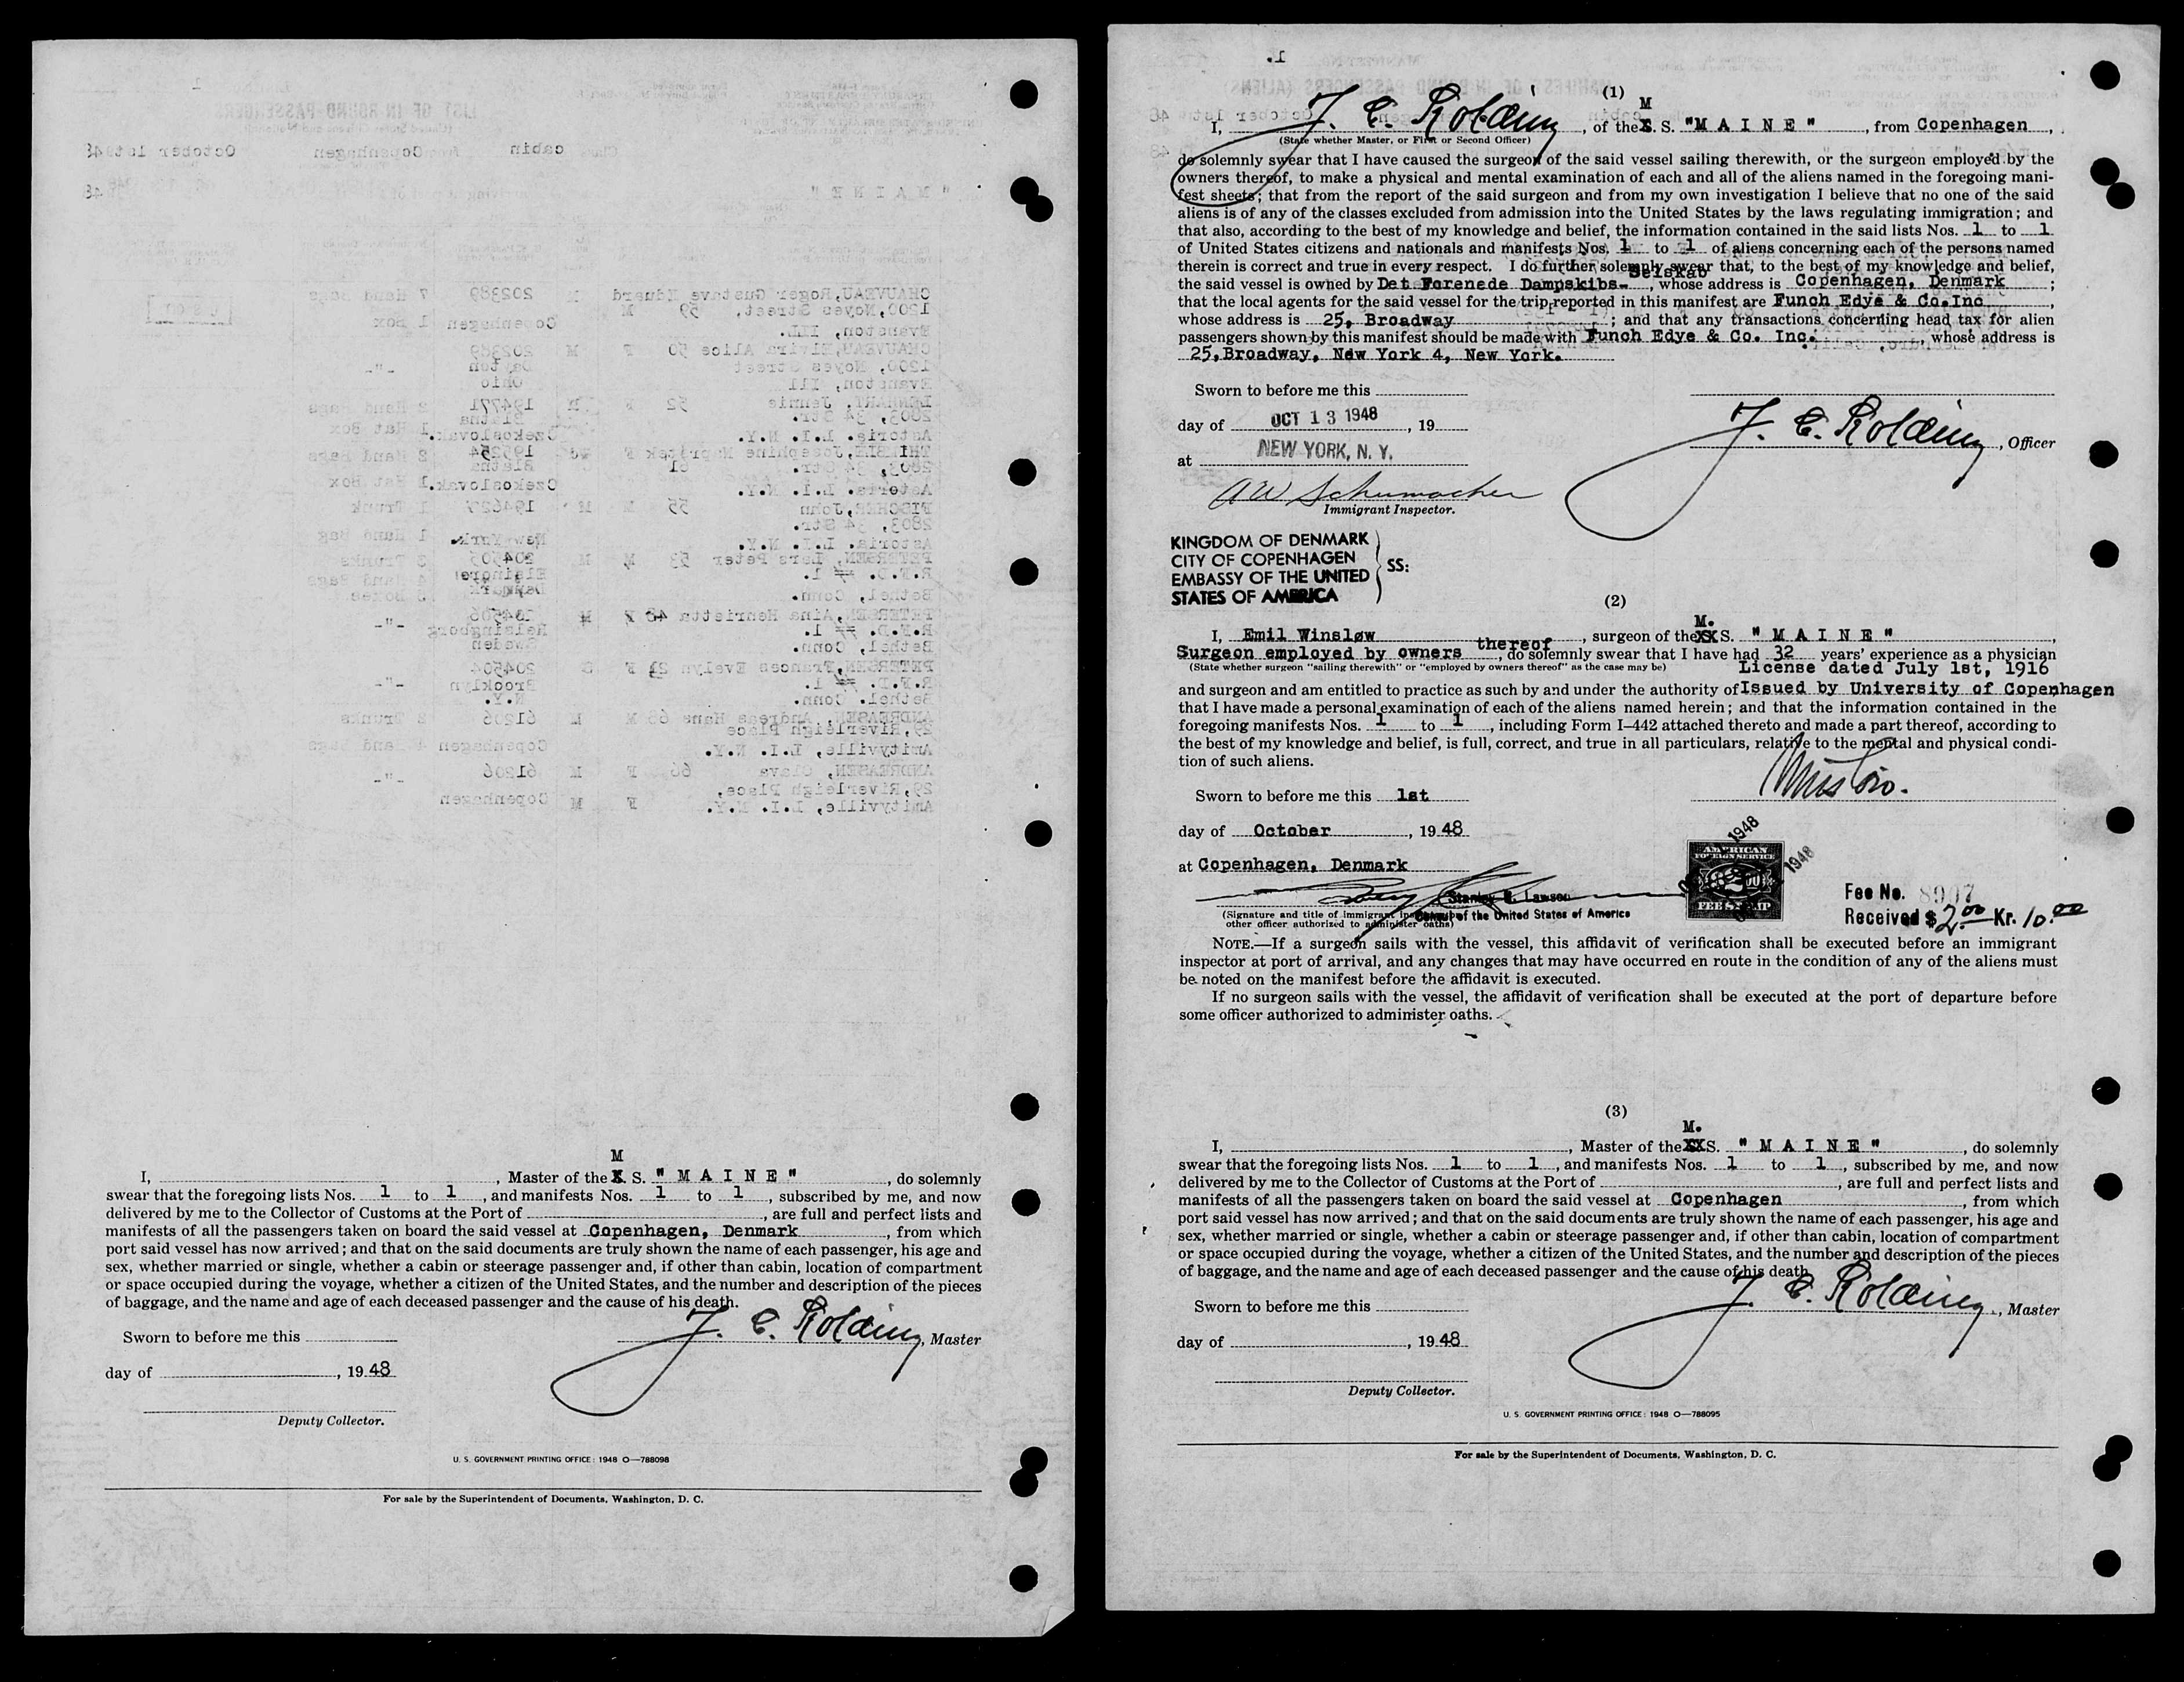 I, , Master of the M S. "MAINE" , do solemnly
swear that the foregoing lists Nos. 1 to 1 , and manifests Nos. 1 to 1 , subscribed by me, and now
delivered by me to the Collector of Customs at the Port of , are full and perfect lists and
manifests of all the passengers taken on board the said vessel at Copenhagen, Denmark , from which
port said vessel has now arrived; and that on the said documents are truly shown the name of each passenger, his age and
sex, whether married or single, whether a cabin or steerage passenger and, if other than cabin, location of compartment
or space occupied during the voyage, whether a citizen of the United States, and the number and description of the pieces
of baggage, and the name and age of each deceased passenger and the cause of his death.
Sworn to before me this
J. C. Kolding, Master
day of , 1948
Deputy Collector.
U. S. GOVERNMENT PRINTING OFFICE: 1948 O—788098
For sale by the Superintendent of Documents, Washington, D. C.
(1)
I, J. C. Kolding , of the M S. "MAINE" , from Copenhagen ,
(State whether Master, or First or Second Officer)
do solemnly swear that I have caused the surgeon of the said vessel sailing therewith, or the surgeon employed by the
owners thereof, to make a physical and mental examination of each and all of the aliens named in the foregoing mani-
fest sheets; that from the report of the said surgeon and from my own investigation I believe that no one of the said
aliens is of any of the classes excluded from admission into the United States by the laws regulating immigration; and
that also, according to the best of my knowledge and belief, the information contained in the said lists Nos. 1 to 1
of United States citizens and nationals and manifests Nos. 1 to 1 of aliens concerning each of the persons named
therein is correct and true in every respect. I do further solemnly swear that, to the best of my knowledge and belief,
the said vessel is owned by Det Forenede Dampskibs- Selskab , whose address is Copenhagen, Denmark ;
that the local agents for the said vessel for the trip reported in this manifest are Funch Edye & Co. Inc ,
whose address is 25, Broadway ; and that any transactions concerning head tax for alien
passengers shown by this manifest should be made with Funch Edye & Co. Inc. , whose address is
25, Broadway, New York 4, New York.
Sworn to before me this
day of OCT 13 1948 , 19
J. C. Kolding, Officer
at NEW YORK, N. Y.
A W Schumacher
Immigrant Inspector.
KINGDOM OF DENMARK
CITY OF COPENHAGEN
EMBASSY OF THE UNITED
STATES OF AMERICA
SS:
(2)
I, Emil Winsløw , surgeon of the M. S. "MAINE" ,
Surgeon employed by owners thereof , do solemnly swear that I have had 32 years' experience as a physician
(State whether surgeon "sailing therewith" or "employed by owners thereof" as the case may be)
License dated July 1st, 1916
and surgeon and am entitled to practice as such by and under the authority of Issued by University of Copenhagen
that I have made a personal examination of each of the aliens named herein; and that the information contained in the
foregoing manifests Nos. 1 to 1 , including Form I–442 attached thereto and made a part thereof, according to
the best of my knowledge and belief, is full, correct, and true in all particulars, relative to the mental and physical condi-
tion of such aliens.
Sworn to before me this 1st
day of October , 1948
at Copenhagen, Denmark
Stanley R. Lawson
Consul of the United States of America
(Signature and title of immigrant
other officer authorized to administer oaths)
1948
1948
AMERICAN
FOREIGN SERVICE
FEE STAMP
Fee No. 8907
Received $2.00 Kr. 10.00
NOTE.—If a surgeon sails with the vessel, this affidavit of verification shall be executed before an immigrant
inspector at port of arrival, and any changes that may have occurred en route in the condition of any of the aliens must
be noted on the manifest before the affidavit is executed.
If no surgeon sails with the vessel, the affidavit of verification shall be executed at the port of departure before
some officer authorized to administer oaths.
(3)
I, , Master of the M. S. "MAINE" , do solemnly
swear that the foregoing lists Nos. 1 to 1 , and manifests Nos. 1 to 1 , subscribed by me, and now
delivered by me to the Collector of Customs at the Port of , are full and perfect lists and
manifests of all the passengers taken on board the said vessel at Copenhagen , from which
port said vessel has now arrived; and that on the said documents are truly shown the name of each passenger, his age and
sex, whether married or single, whether a cabin or steerage passenger and, if other than cabin, location of compartment
or space occupied during the voyage, whether a citizen of the United States, and the number and description of the pieces
of baggage, and the name and age of each deceased passenger and the cause of his death.
Sworn to before me this
J. C. Kolding, Master
day of , 1948
Deputy Collector.
U. S. GOVERNMENT PRINTING OFFICE: 1948 O—788095
For sale by the Superintendent of Documents, Washington, D. C.